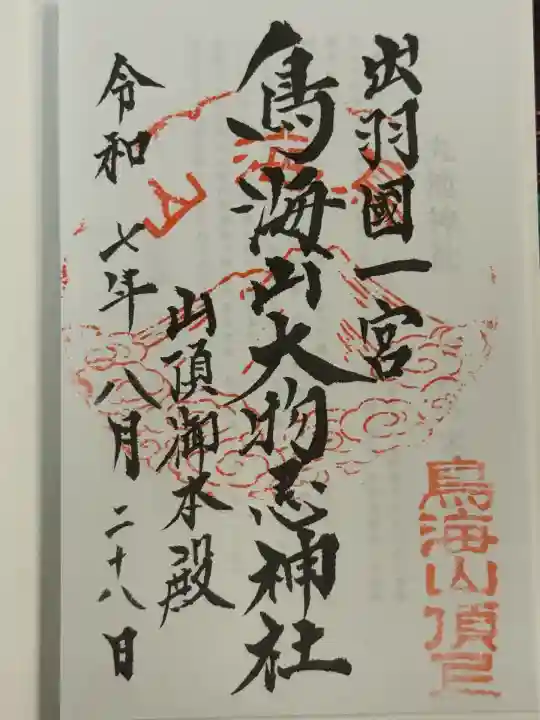 出羽國一宮
鳥海山大物忌神社
山頂御本殿
令和七年八月二十八日
鳥海山頂